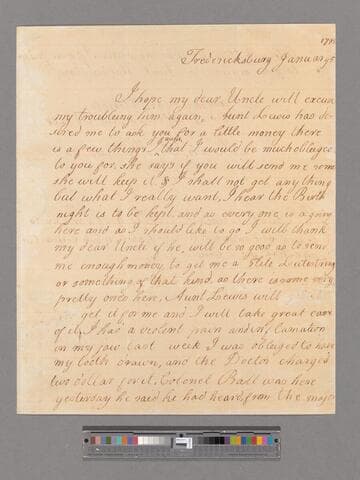 179
Fredericksburg January 5
I hope my dear Uncle will excuse
my troubling him again, Aunt Lewis has de
sired me to ask you for a little money there
is a few things I want that I would be much obliged
to you for, she says if you will send me some
she will keep it & I shall not get any thing
but what I really want, I hear the Birth
night is to be kept and as every one is a going
here and as I should like to go I will thank
my dear Uncle if he, will be so good as to send
me enough money to get me a Lutestring
or something of that kind, as there is some very
pretty ones here, Aunt Lewis will
get it for me and I will take great care
of it, I had a violent pain and inflamation
in my jaw last week I was obliged to have
my tooth drawn, and the Doctor charged
two dollar for it, Colonel Ball was here
yesterday he said he had heard from the major